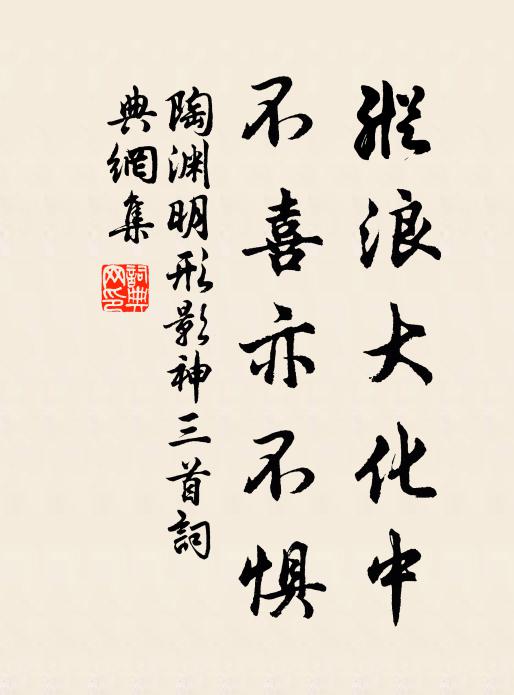 縱浪大化中
不喜亦不懼
陶淵明形影神三首詞
典網集
詞典网印